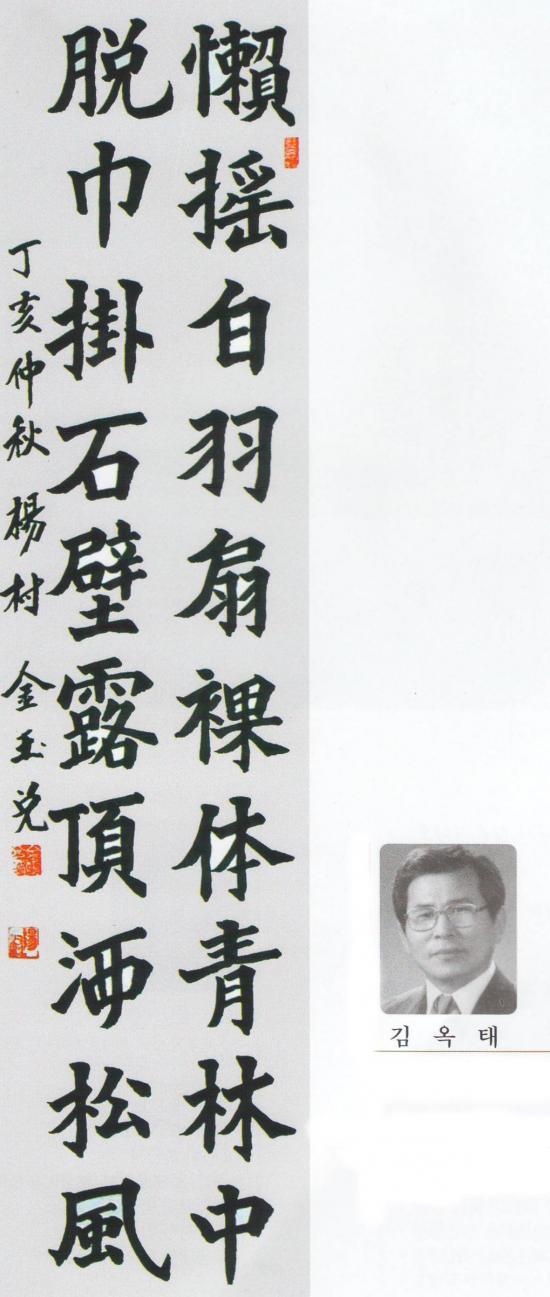 懶搖白羽扇裸体青林中
脫巾掛石壁露頂洒松風
丁亥仲秋 楊村 金玉兌
김옥태